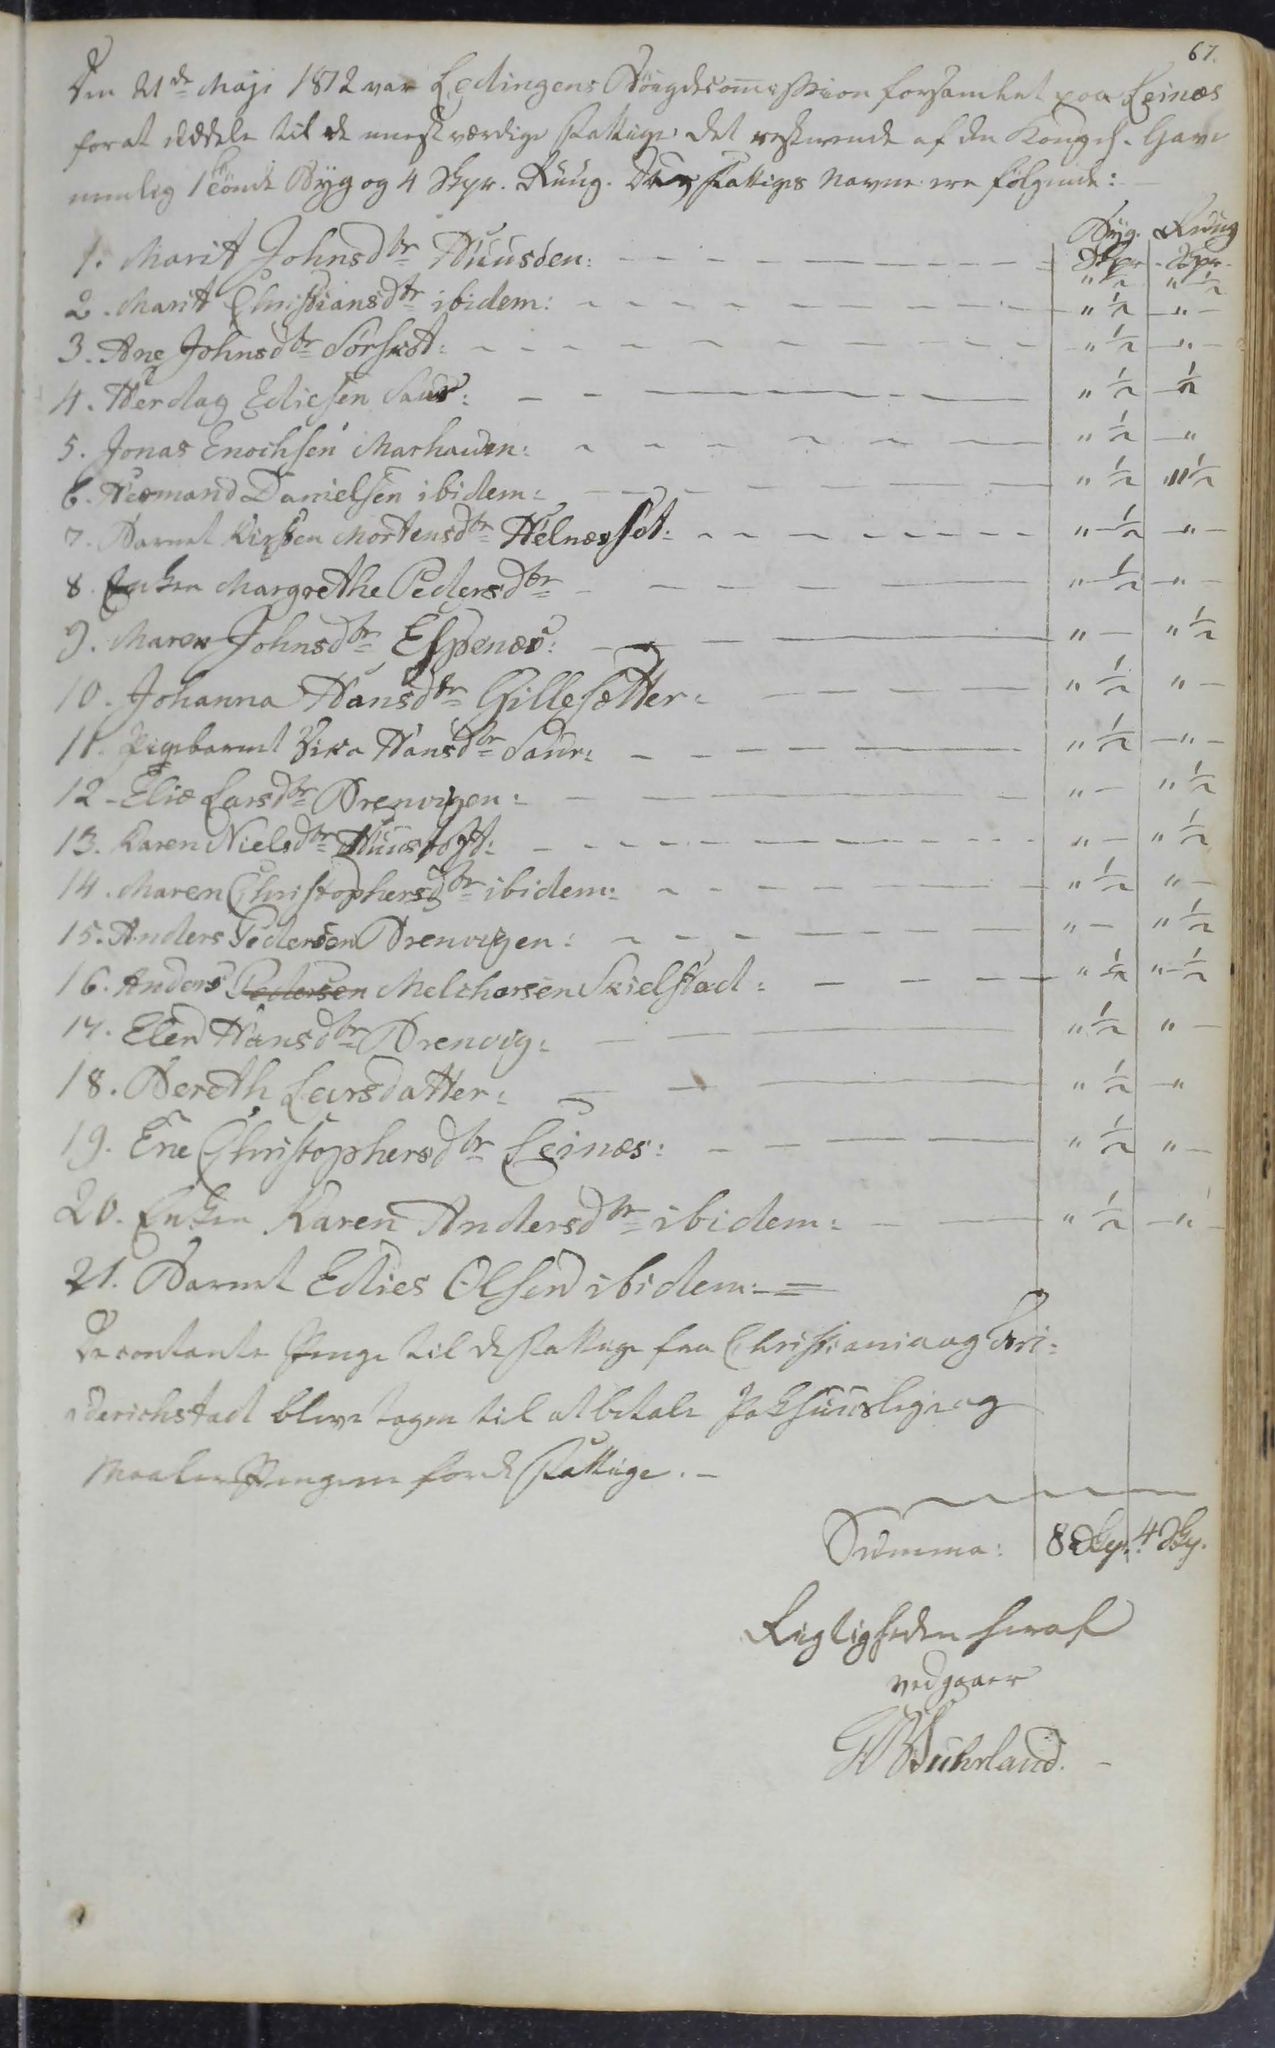 67.
Den 21de Maji 1812 var Lødingens Bøigdecommission forsamlet paa Leinæs
for at uddele til de meest værdige Fattige det resterende af den Kongel. Gave
nemlig 1 Tønde Byg og 4 Skpr. Ruug. Fattiges Navne ere følgende:
Byg. Ruug
Skpr. Skpr.
1. Marit Johnsdtr Huusden: " ½ " ½
2. Marit Christiansdtr ibidem: " ½ "
3. Ane Johnsdtr Sörskot: " ½ "
4. Herdag Edissen Saur: " ½ ½
5. Jonas Enochsen Marhauen: " ½ "
6. Normand Danielsen ibidem: " ½ " ½
7. Barnet Kirsten Mortensdtr Helnæsset: " ½ "
8. Enken Margrethe Pedersdtr " ½ "
9. Maren Johnsdtr Espenæs: " " ½
10. Johanna Hansdtr Gillesætter: " ½ "
11. Pigebarnet Hansdtr Saur: " ½ "
12. Elie Larsdtr Drenvigen: " " ½
13. Karen Nielsdtr Huustoft: " " ½
14. Maren Christophersdtr ibidem: " ½ "
15. Anders Pedersen Drenvigen: " " ½
16. Anders Pedersen Melchorsen Skielstad: " ½ " ½
17. Elen Hansdtr Drenvig: " ½ "
18. Bereth Larsdatter: " ½ "
19. Ene Christophersdtr Leinæs: " ½ "
20. Enken Karen Andersdtr ibidem: " ½ "
21. Barnet Edies Olsen ibidem:
De contante Penge til de Fattige fra Christiania og Fri=
derichstad bleve tagen til at betale Pakhuusleje og
Maaler Pengene for de Fattige.
Summa: 8 Skp. 4 Skp.
Rigtigheden heraf
vedgaaer
Buhrland.